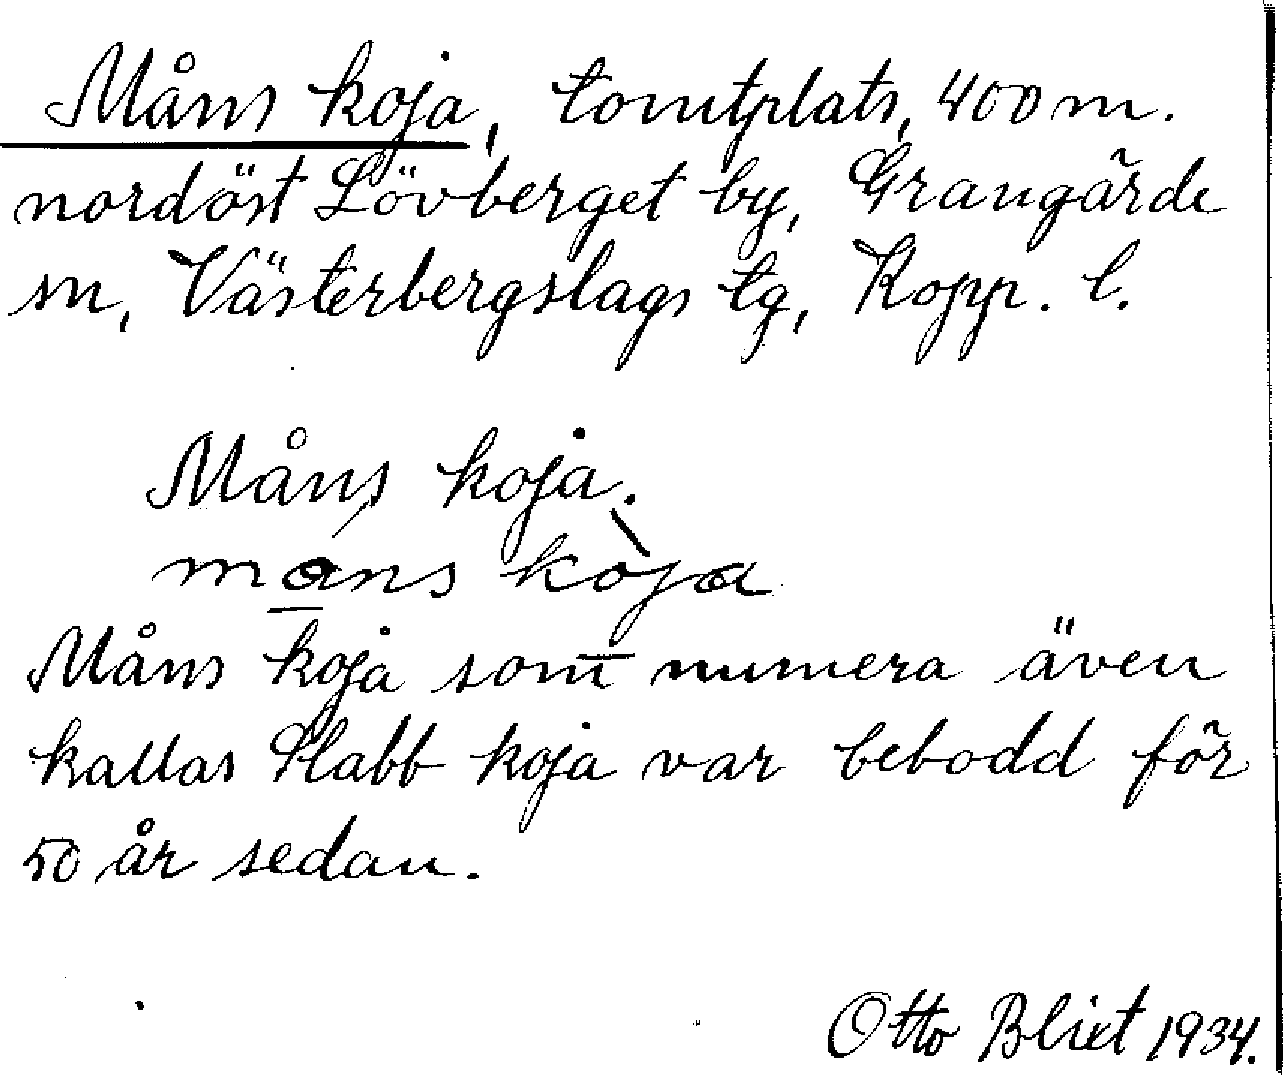 Måns koja, tomtplats, 400 m.
nordöst Lövberget by, Grangärde
sn, Västerbergslags tg, Kopp. l.
Måns koja.
måns kòja
Måns koja som numera även
kallas Stabb koja var bebodd för
50 år sedan.
Otto Blixt 1934.